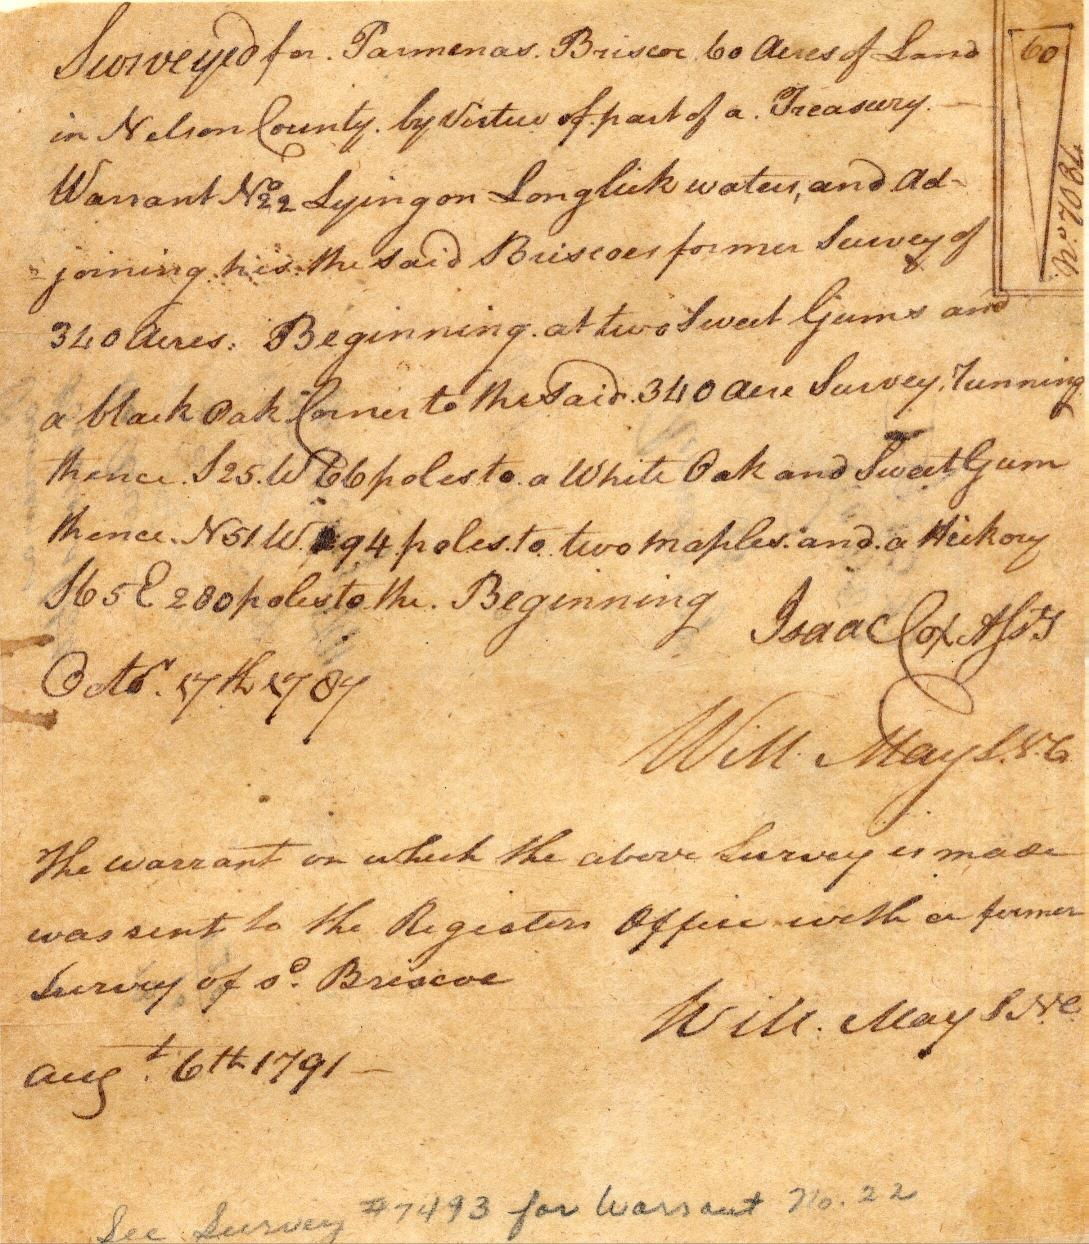 Surveyed for Parmenas Briscoe 60 Acres of Land
in Nelson County by Virtue of part of a Treasury
Warrant No 22 Lying on Longlick waters, and Ad-
joining his the said Briscoes former Survey of
340 Acres. Beginning at two Sweet Gums and
a black Oak Corner to the said 340 Acre Survey, Running
thence S25W 66 poles to a White Oak and Sweet Gum
thence N51W 294 poles to two maples and a Hickory
S65E 280 poles to the Beginning
Isaac Cox Asst
Octr. 17th 1787
Will May S.N.C
The warrant on which the above Survey is made
was sent to the Registers Office with a former
Survey of sd. Briscoe
Will. May S NC
Augt. 6th 1791
See Survey #7493 for Warrant No. 22
60
No. 7084